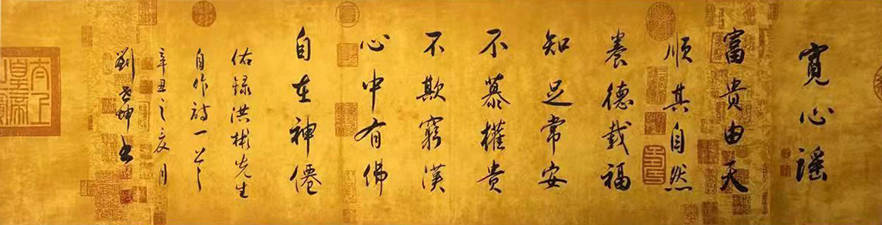 寬心謠
富貴由天
順其自然
養德載福
知足常安
不慕權貴
不欺窮漢
心中有佛
自在神僊
佑録洪彬先生
自作詩一首
辛丑之夏月
劉坤書
太上皇帝